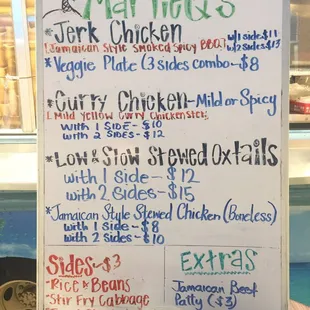 Jerk Chicken w/1 side $11
(Jamaican Style Smoked Spicy BBQ) w/2 sides $13
*Veggie Plate (3 sides combo - $8
*Curry Chicken - Mild or Spicy
(Mild Yellow Curry Chicken
with 1 side - $10
with 2 sides - $12
*Low & Slow Stewed Oxtails
with 1 Side - $12
with 2 Sides - $15
*Jamaican Style Stewed Chicken (Boneless)
with 1 side - $8
with 2 sides - $10
Sides - $3
- Rice & Beans
- Stir Fry Cabbage
Extras
Jamaican Beef
Patty ($3)